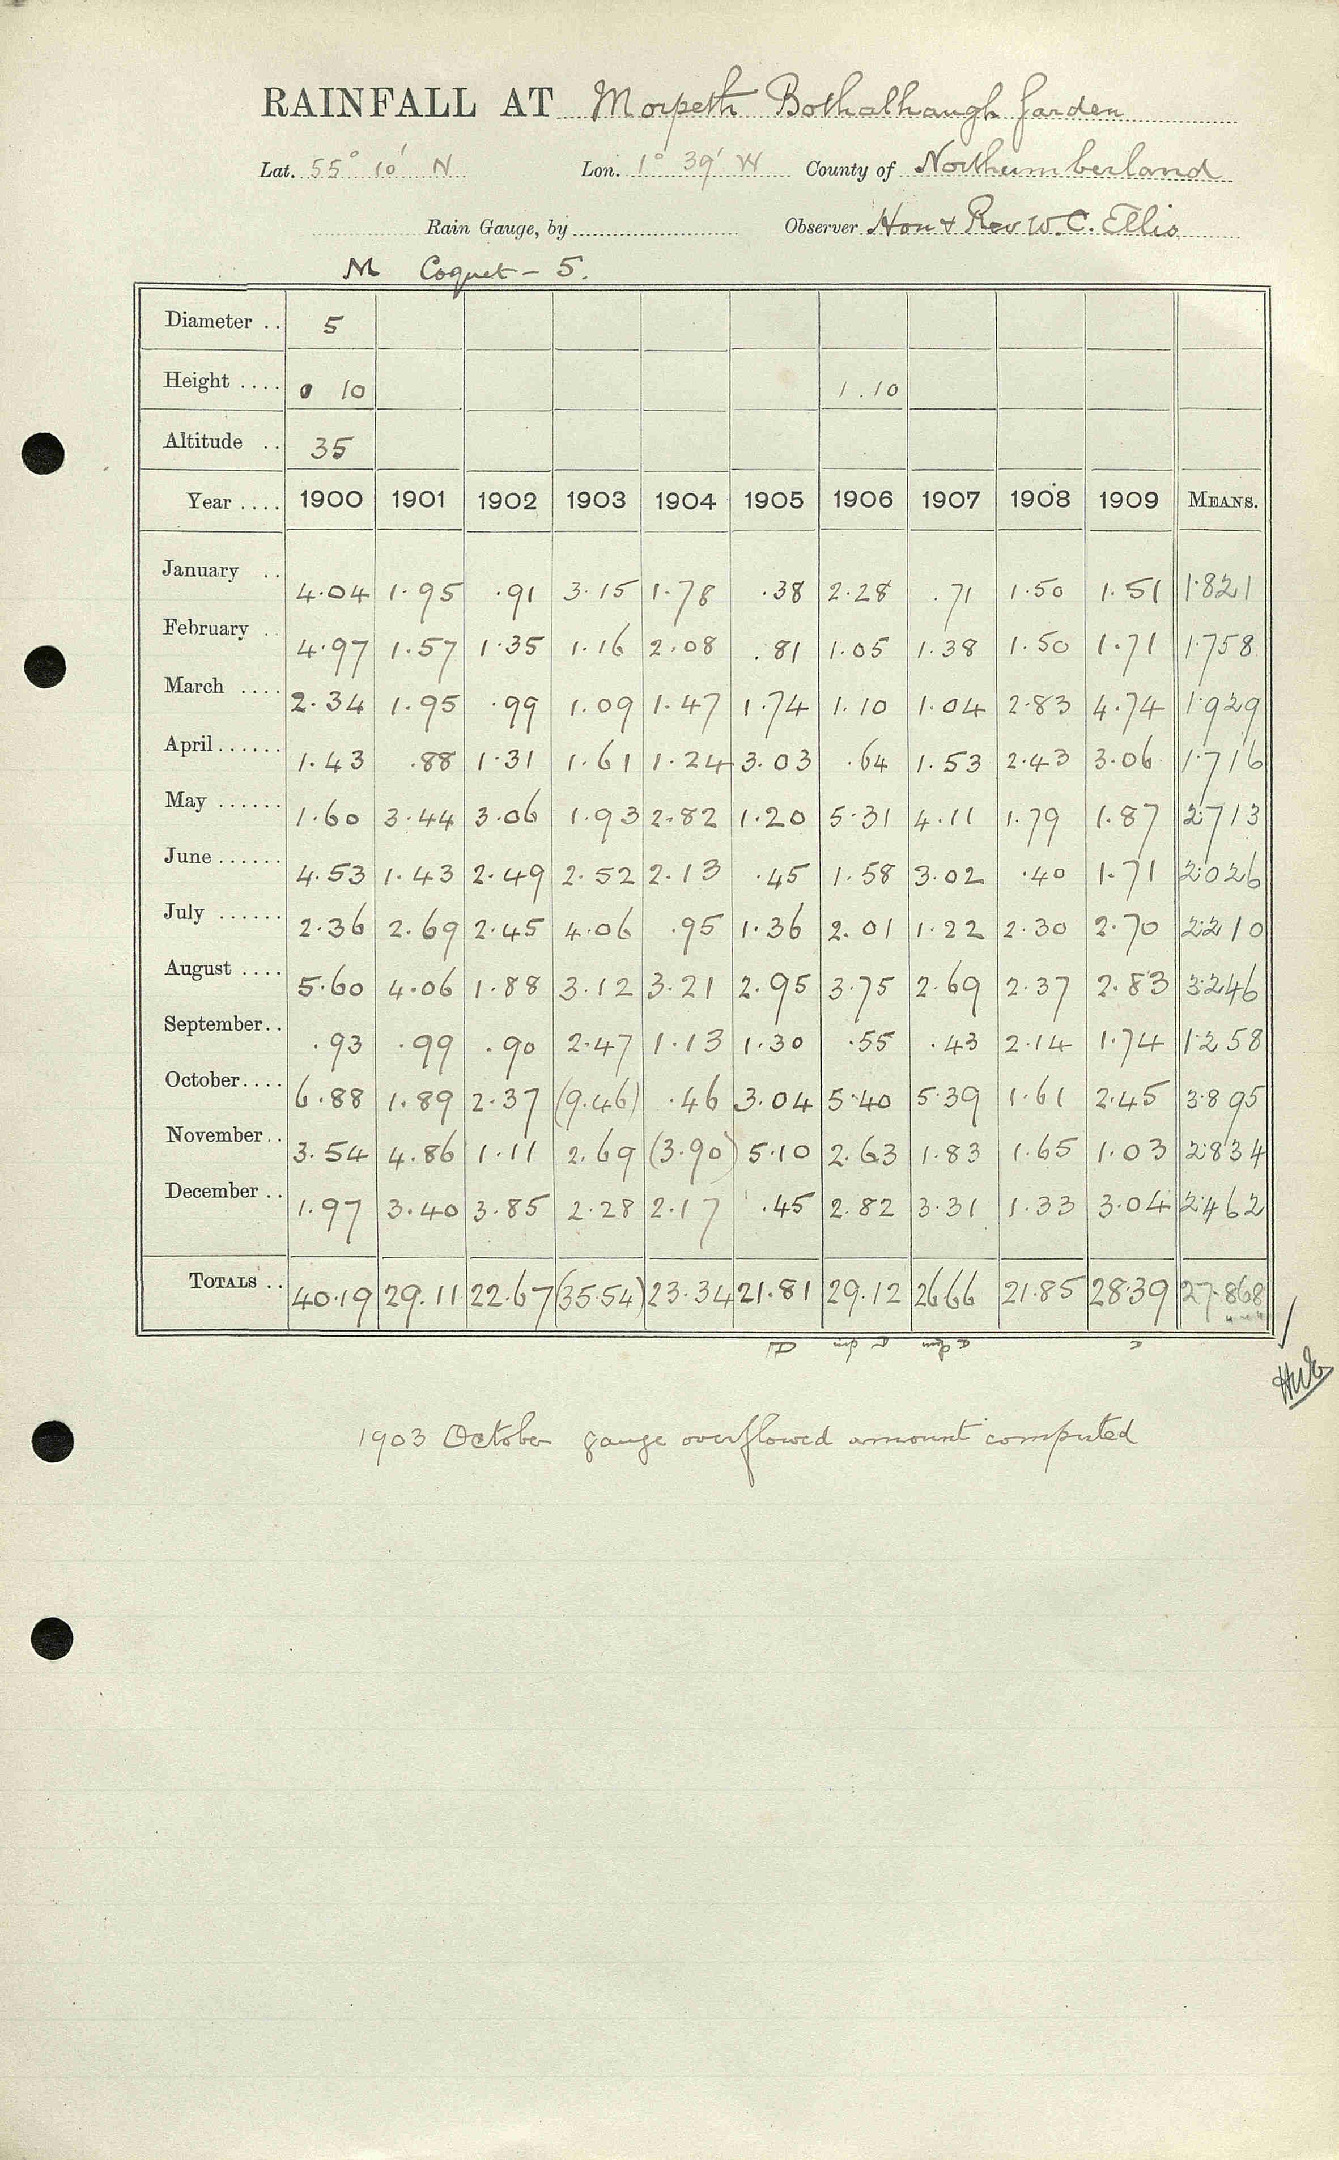 RAINFALL AT Morpeth Bothalhaugh Garden
Lat. 55° 10' N Lon. 1° 39' W County of Northumberland
Rain Gauge, by Observer Hon & Rev W. C. Ellis
M Coquet - 5.
Diameter .. 5
Height .... 0 10 1.10
Altitude .. 35
Year .... 1900 1901 1902 1903 1904 1905 1906 1907 1908 1909 MEANS.
January .. 4.04 1.95 .91 3.15 1.78 .38 2.28 .71 1.50 1.51 1.821
February .. 4.97 1.57 1.35 1.16 2.08 .81 1.05 1.38 1.50 1.71 1.758
March .... 2.34 1.95 .99 1.09 1.47 1.74 1.10 1.04 2.83 4.74 1.929
April ...... 1.43 .88 1.31 1.61 1.24 3.03 .64 1.53 2.43 3.06 1.716
May ...... 1.60 3.44 3.06 1.93 2.82 1.20 5.31 4.11 1.79 1.87 2.713
June ...... 4.53 1.43 2.49 2.52 2.13 .45 1.58 3.02 .40 1.71 2.026
July ...... 2.36 2.69 2.45 4.06 .95 1.36 2.01 1.22 2.30 2.70 2.210
August .... 5.60 4.06 1.88 3.12 3.21 2.95 3.75 2.69 2.37 2.83 3.246
September .. .93 .99 .90 2.47 1.13 1.30 .55 .43 2.14 1.74 1.258
October .... 6.88 1.89 2.37 (9.46) .46 3.04 5.40 5.39 1.61 2.45 3.895
November .. 3.54 4.86 1.11 2.69 (3.90) 5.10 2.63 1.83 1.65 1.03 2.834
December .. 1.97 3.40 3.85 2.28 2.17 .45 2.82 3.31 1.33 3.04 2.462
TOTALS .. 40.19 29.11 22.67 (35.54) 23.34 21.81 29.12 26.66 21.85 28.39 27.868
1903 October gauge overflowed amount computed